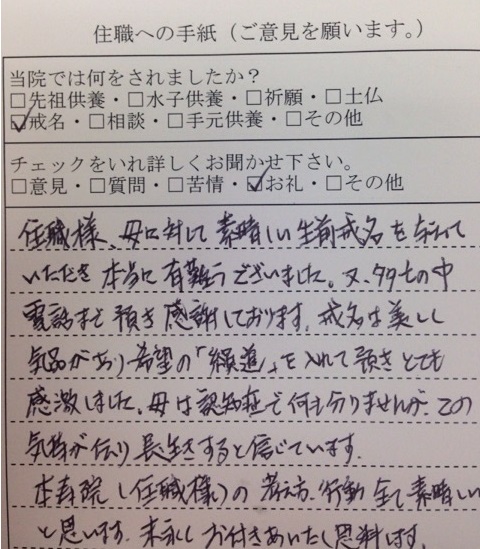 住職への手紙（ご意見を願います。）
当院では何をされましたか？
□先祖供養・□水子供養・□祈願・□土仏
☑戒名・□相談・□手元供養・□その他
チェックをいれ詳しくお聞かせ下さい。
□意見・□質問・□苦情・☑お礼・□その他
住職様、母に対して素晴しい生前戒名を
いただき本当に有難うございました。又、多忙の中
電話まで頂き感謝しております。戒名は美しく
気品があり希望の「絹道」を入れて頂きとても
感激しました。母は認知症で何も分りませんが、この
気持が伝り長生きすると信じています。
本寿院（住職様）の考え方、行動全て素晴しい
と思います。末永くお付きあいたく思料します。